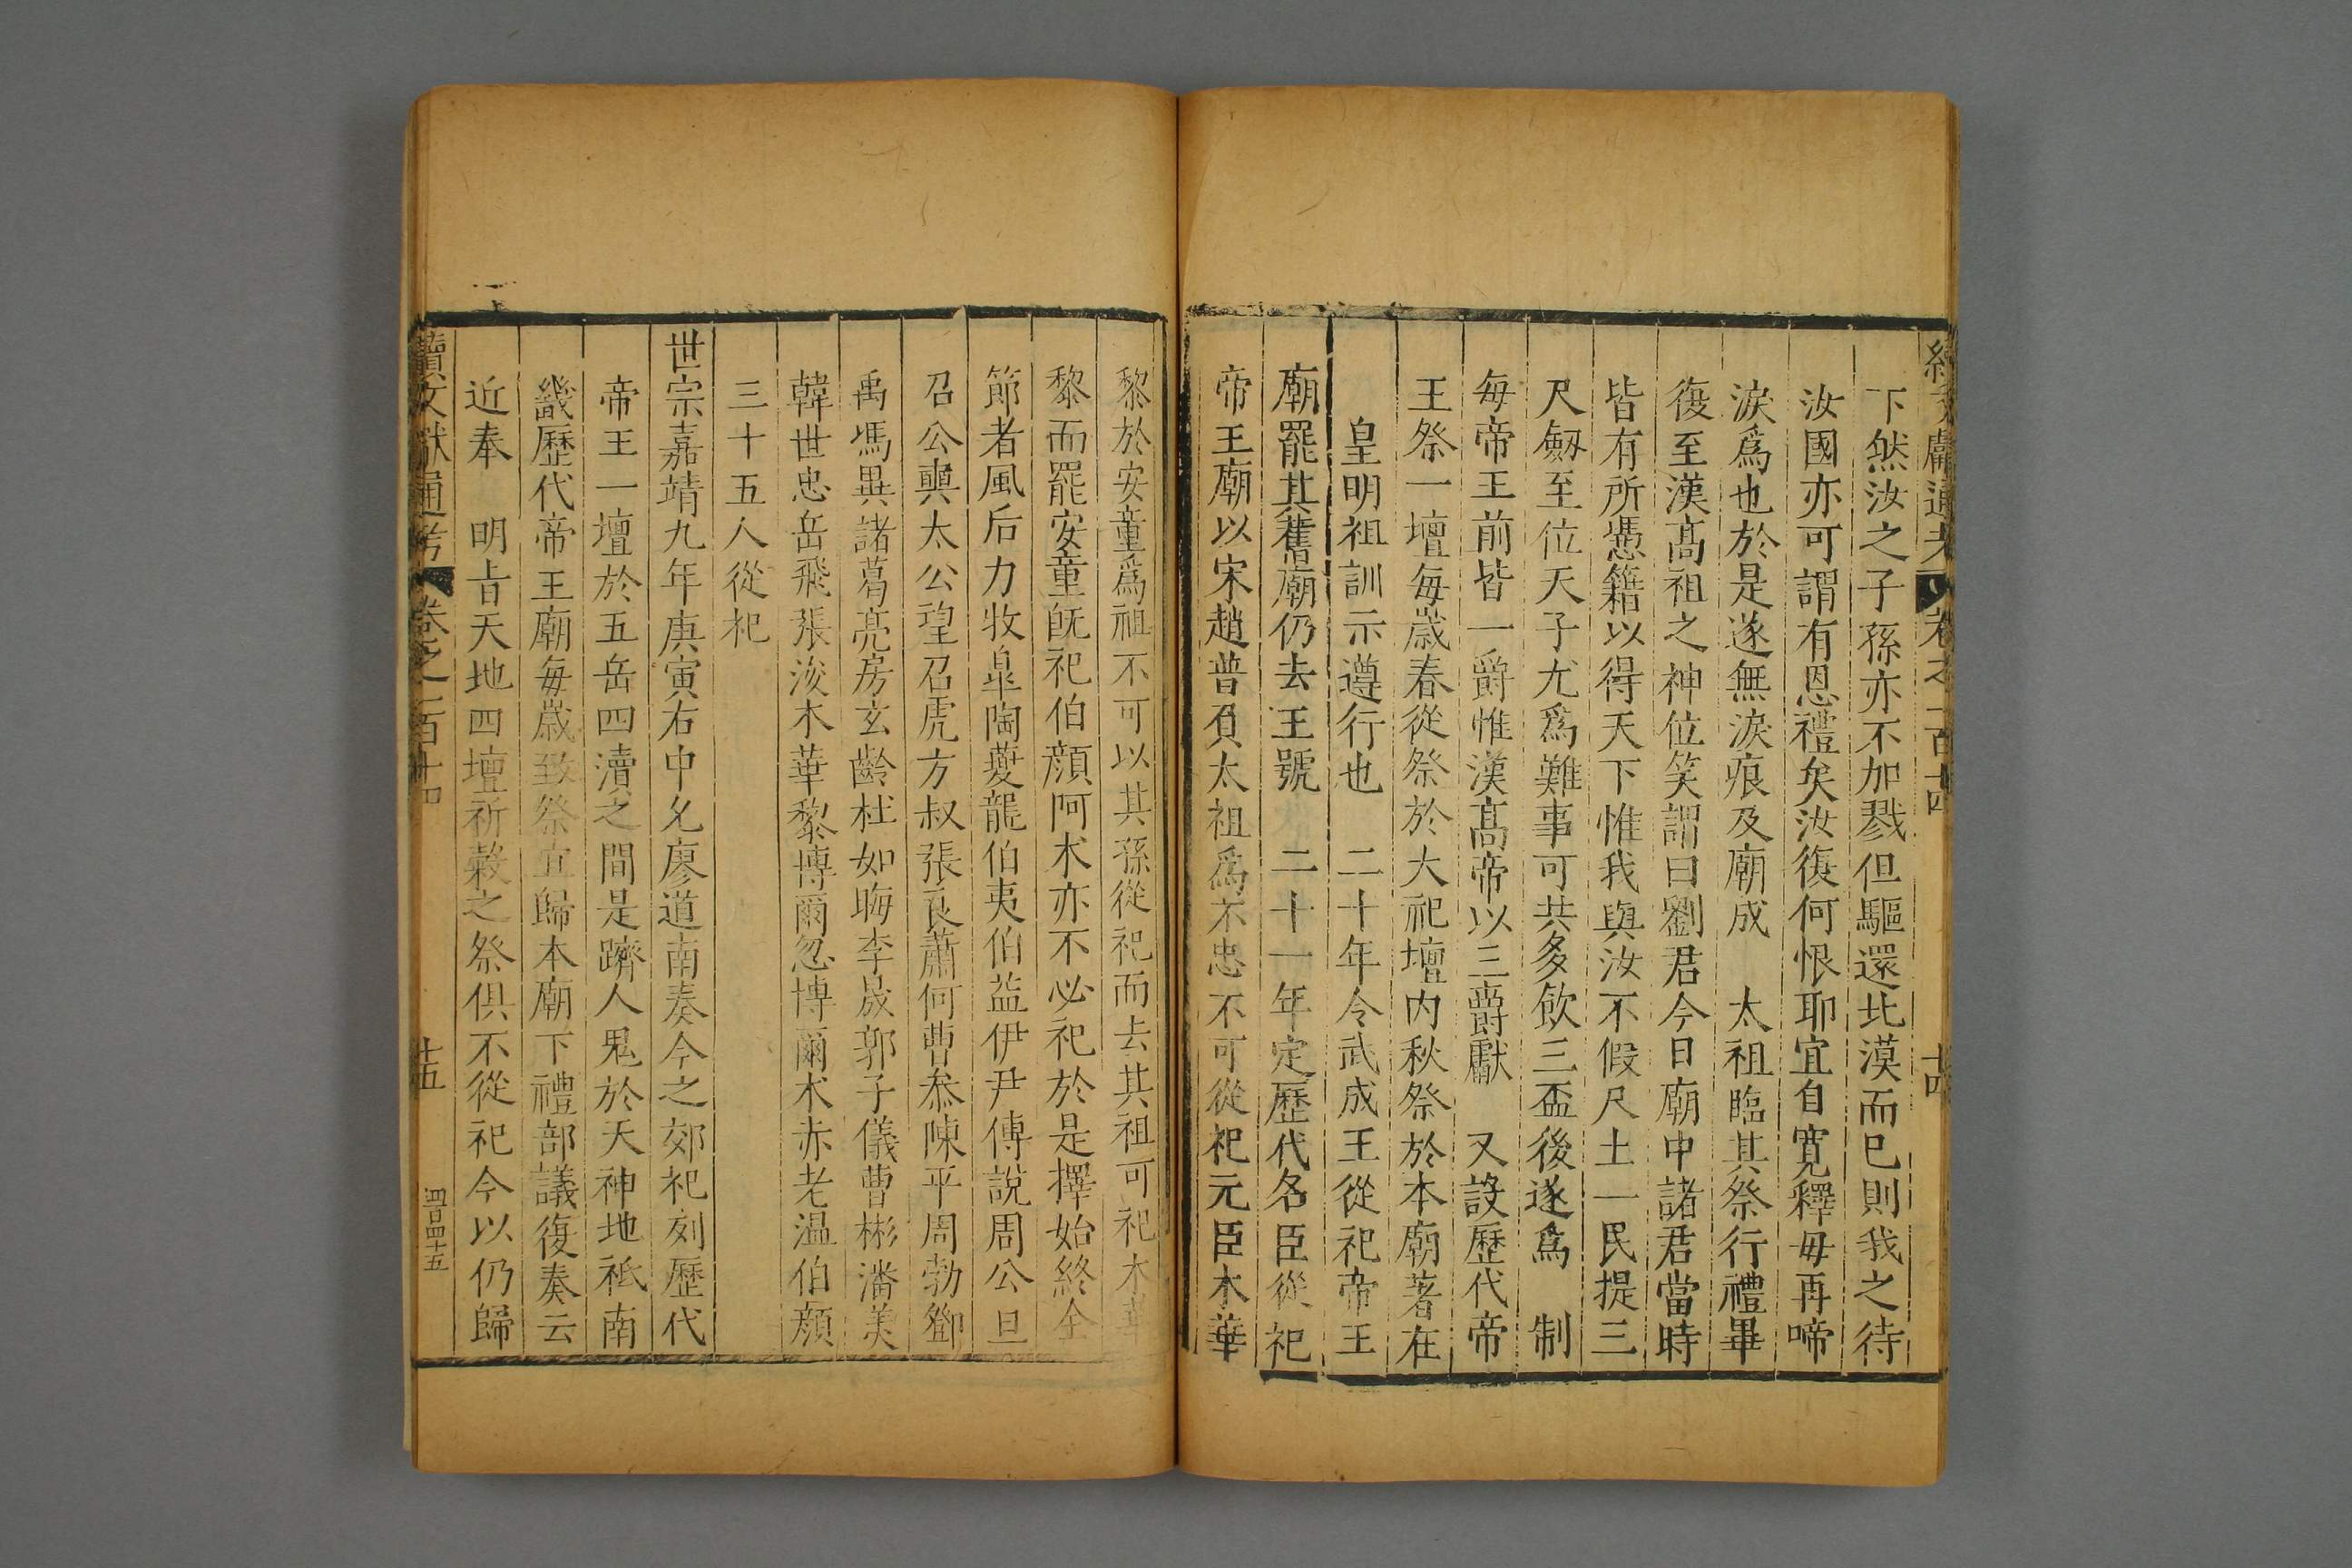 續文獻通考 卷之一百十四 十四
下然汝之子孫亦不加戮但驅還北漠而巳則我之待
汝國亦可謂有恩禮矣汝復何恨耶宜自寬釋毋再啼
淚爲也於是遂無淚痕及廟成 太祖臨其祭行禮畢
復至漢髙祖之神位笑謂曰劉君今日廟中諸君當時
皆有所憑籍以得天下惟我與汝不假尺土一民提三
尺劔至位天子尤爲難事可共多飲三盃後遂爲 制
每帝王前皆一爵惟漢髙帝以三爵獻 又設歷代帝
王祭一壇每歲春從祭於大祀壇内秋祭於本廟著在
皇明祖訓示遵行也 二十年令武成王從祀帝王
廟罷其舊廟仍去王號 二十一年定歷代名臣從祀
帝王廟以宋趙普負太祖爲不忠不可從祀元臣木華
黎於安童爲祖不可以其孫從祀而去其祖可祀木華
黎而罷安童旣祀伯顔阿术亦不必祀於是擇始終全
節者風后力牧臯陶夔龍伯夷伯益伊尹傅說周公旦
召公奭太公望召虎方叔張良蕭何曹叅陳平周勃鄧
禹馮異諸葛亮房玄齡杜如晦李晟郭子儀曹彬潘美
韓世忠岳飛張浚木華黎博爾忽博爾术赤老温伯顔
三十五人從祀
世宗嘉靖九年庚寅右中允廖道南奏今之郊祀列歷代
帝王一壇於五岳四瀆之間是躋人鬼於天神地祇南
畿歷代帝王廟每歲致祭宜歸本廟下禮部議復奏云
近奉 明旨天地四壇祈穀之祭俱不從祀今以仍歸
續文獻通考 卷之一百十四 十五 四百四十五